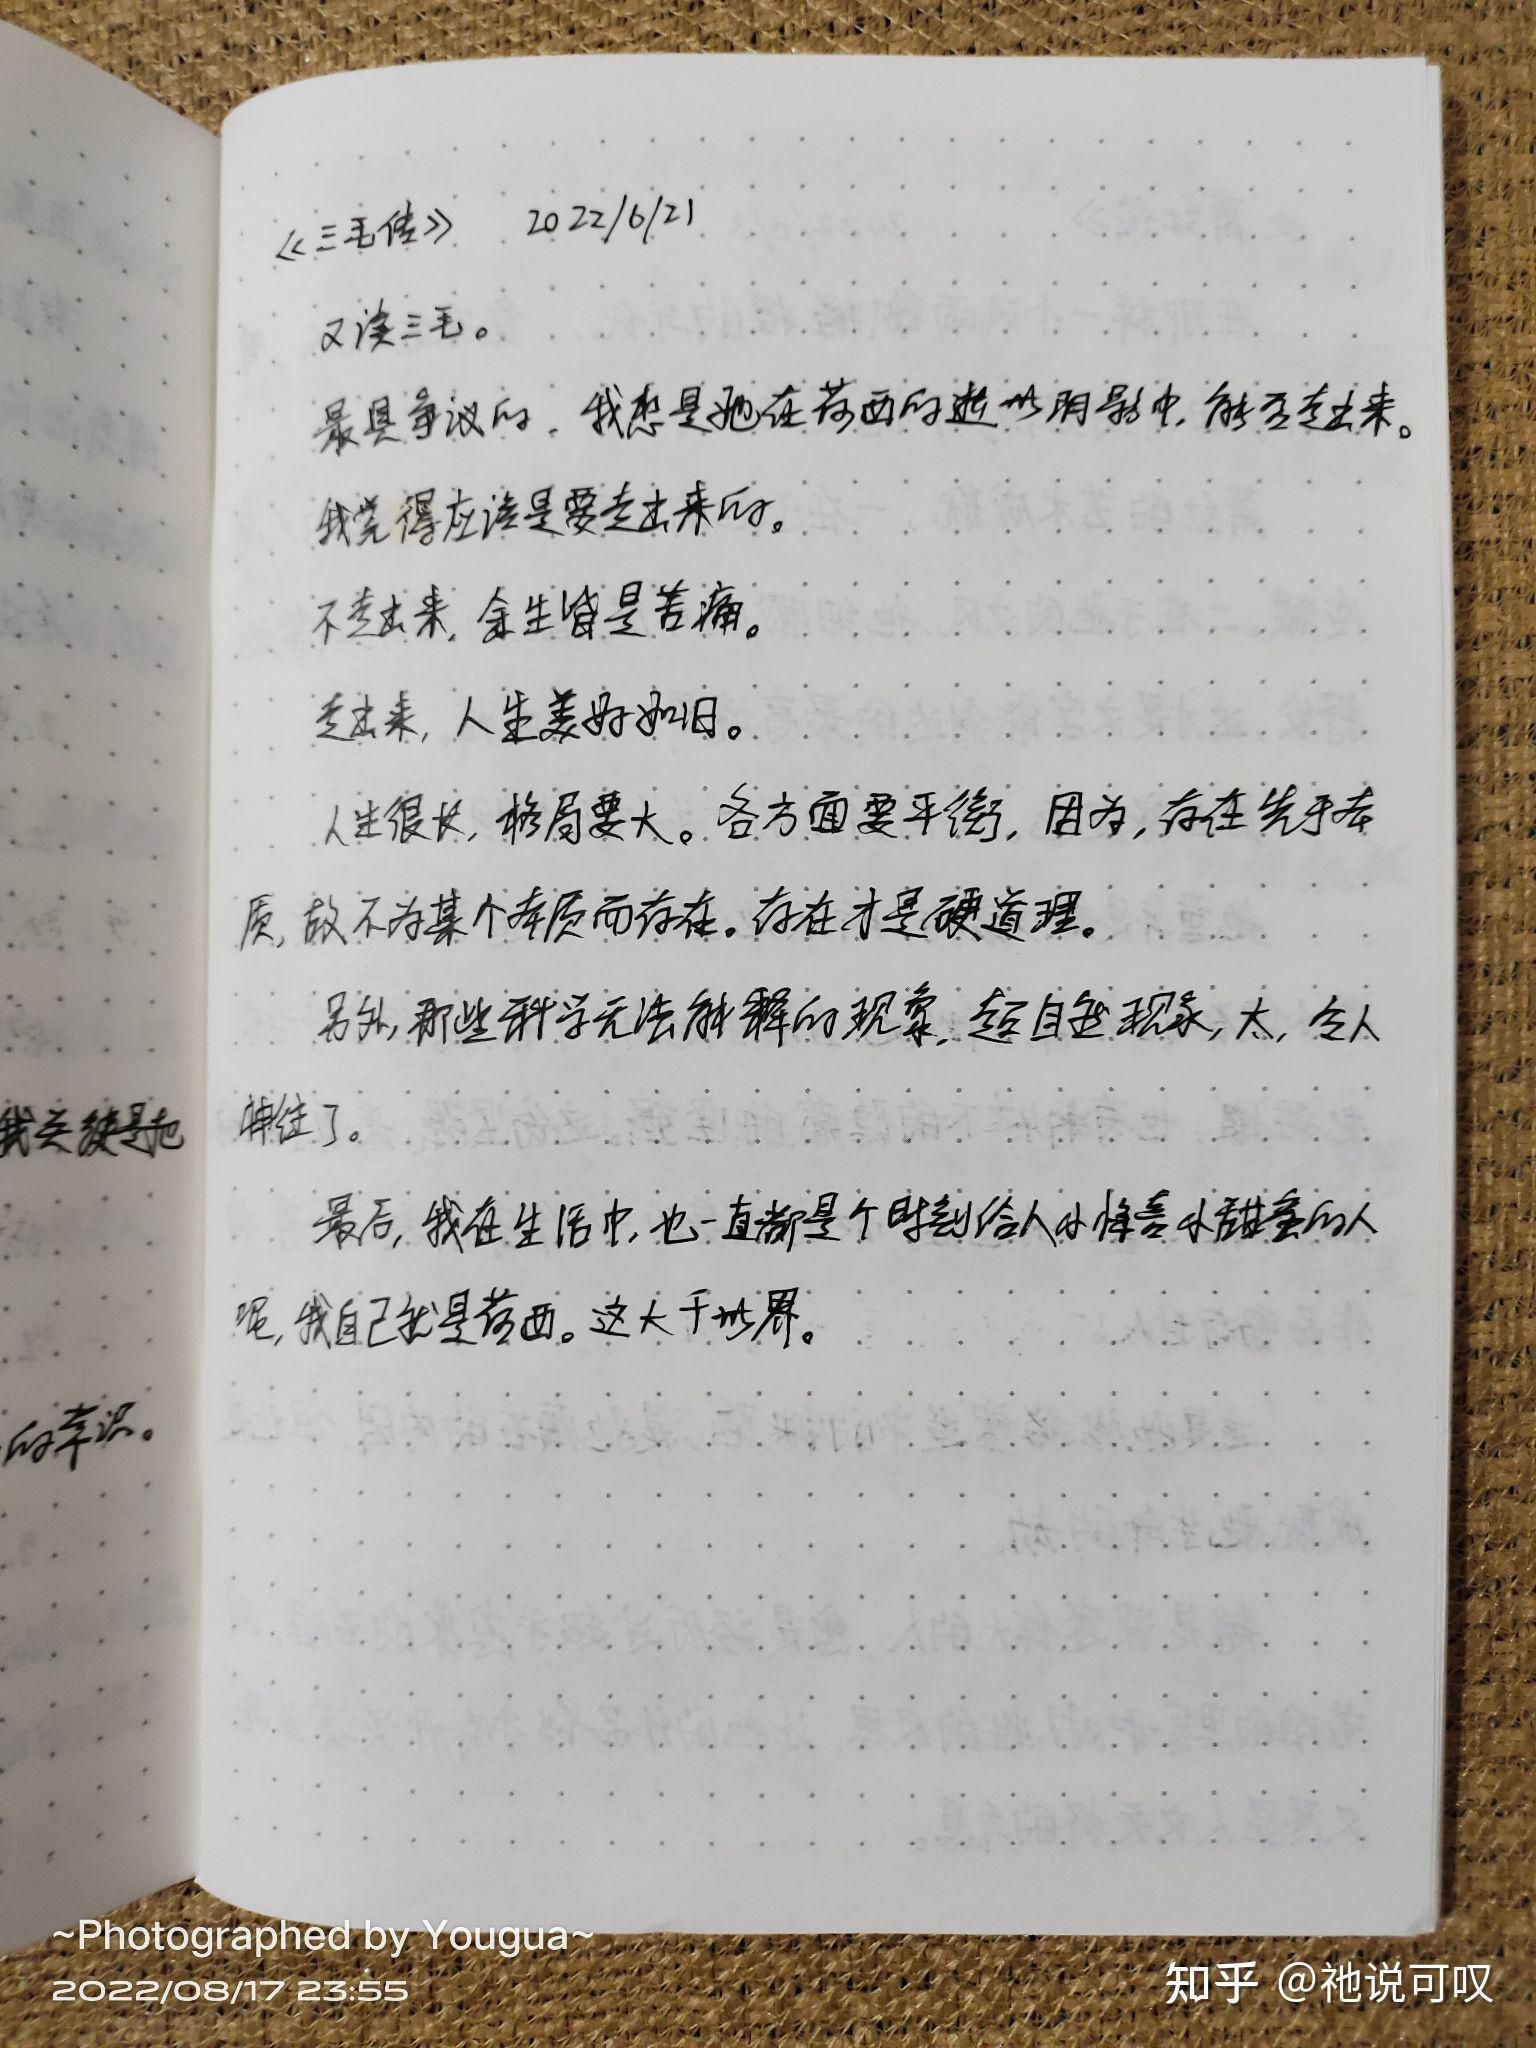 《三毛传》 2022/6/21
又读三毛。
最具争议的,我想是她在荷西的逝世阴影中,能否走出来。
我觉得应该是要走出来的。
不走出来,余生皆是苦痛。
走出来,人生美好如旧。
人生很长,格局要大。各方面要平衡,因为,存在先于本
质,故不为某个本质而存在。存在才是硬道理。
另外,那些科学无法解释的现象,超自然现象,太,令人
神往了。
最后,我在生活中,也一直都是个时刻给人小惊喜小甜蜜的人
呢,我自己就是荷西。这大千世界。
我关键是把
的幸误。
~Photographed by Yougua~
2022/08/17 23:55
知乎 @祂说可叹